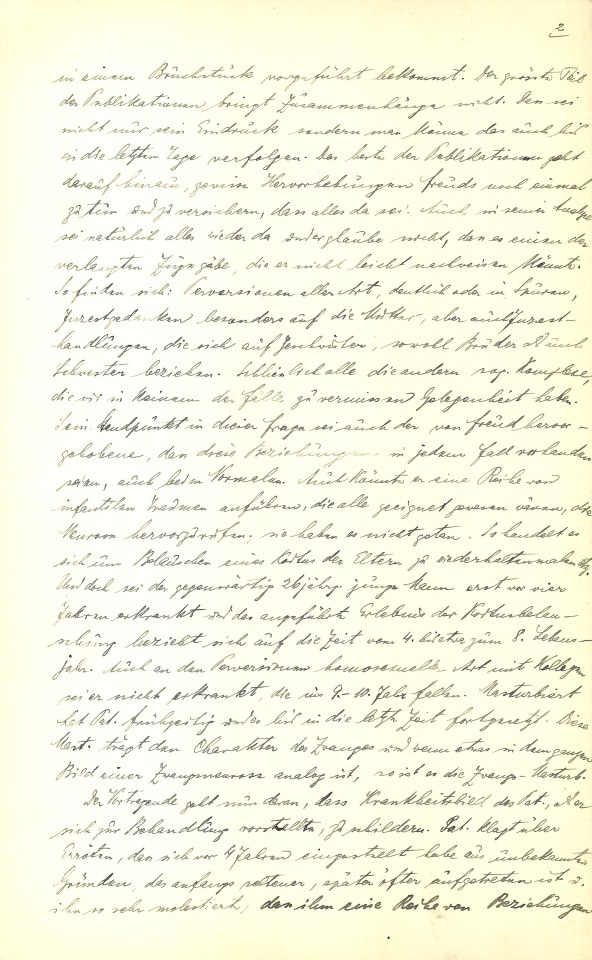 2
in einem Bruchstück vorgeführt bekommt. Der grösste Teil
der Publikationen bringt Zusammenhänge nicht. Das sei
nicht nur sein Eindruck sondern man könne das auch bis
in die letzten Tage verfolgen. Das beste der Publikationen geht
darauf hinaus, gewisse Hervorhebungen Freuds noch einmal
zu tun und zu versichern, dass alles da sei. Auch in seiner Analyse
sei natürlich alles wieder da und er glaube nicht, dass es einen der
verlangten Züge gäbe, die er nicht leicht nachweisen könnte.
So finden sich: Perversionen aller Art, deutlich oder in Spuren,
Inzestgedanken besonders auf die Mutter, aber auch Inzest-
handlungen, die sich auf Geschwister, sowohl Brüder als auch
Schwester beziehen. Schliesslich alle die andern sog. Komplexe,
die wir in keinem der Fälle zu vermissen Gelegenheit haben.
Sein Standpunkt in dieser Frage sei auch der von Freud hervor-
gehobene, dass diese Beziehungen in jedem Fall vorhanden
seien, auch beim Normalen. Auch könnte er eine Reihe von
infantilen Traumen anführen, die alle geeignet gewesen wären, die
Neurose hervorzurufen. sie haben es nicht getan. So handelt es
sich um Belauschen eines Koitus der Eltern zu wiederholtenmalen
Und doch sei der gegenwärtig 26jährige junge Mann erst vor vier
Jahren erkrankt und das angeführte Erlebnis der Koitusbelau-
schung bezieht sich auf die Zeit vom 4. bis etwa zum 8. Lebens-
jahr. Auch an den Perversionen homosexueller Art mit Kollegen
sei er nicht erkrankt, die ins 9.-10. Jahr fallen. Masturbiert
hat Pat. frühzeitig und es bis in die letzte Zeit fortgesetzt. Diese
Mast. trägt den Charakter des Zwanges und wenn etwas in dem ganzen
Bild einer Zwangsneurose analog ist, so ist es die Zwangs-Masturb.
Der Vortragende geht nun daran, das Krankheitsbild des Pat., als er
sich zur Behandlung vorstellte, zu schildern. Pat. klagt über
Erröten, das sich vor 4 Jahren eingestellt habe aus unbekannten
Gründen, das anfangs seltener, später öfter aufgetreten ist u.
ihn so sehr molestierte, dass ihm eine Reihe von Beziehungen